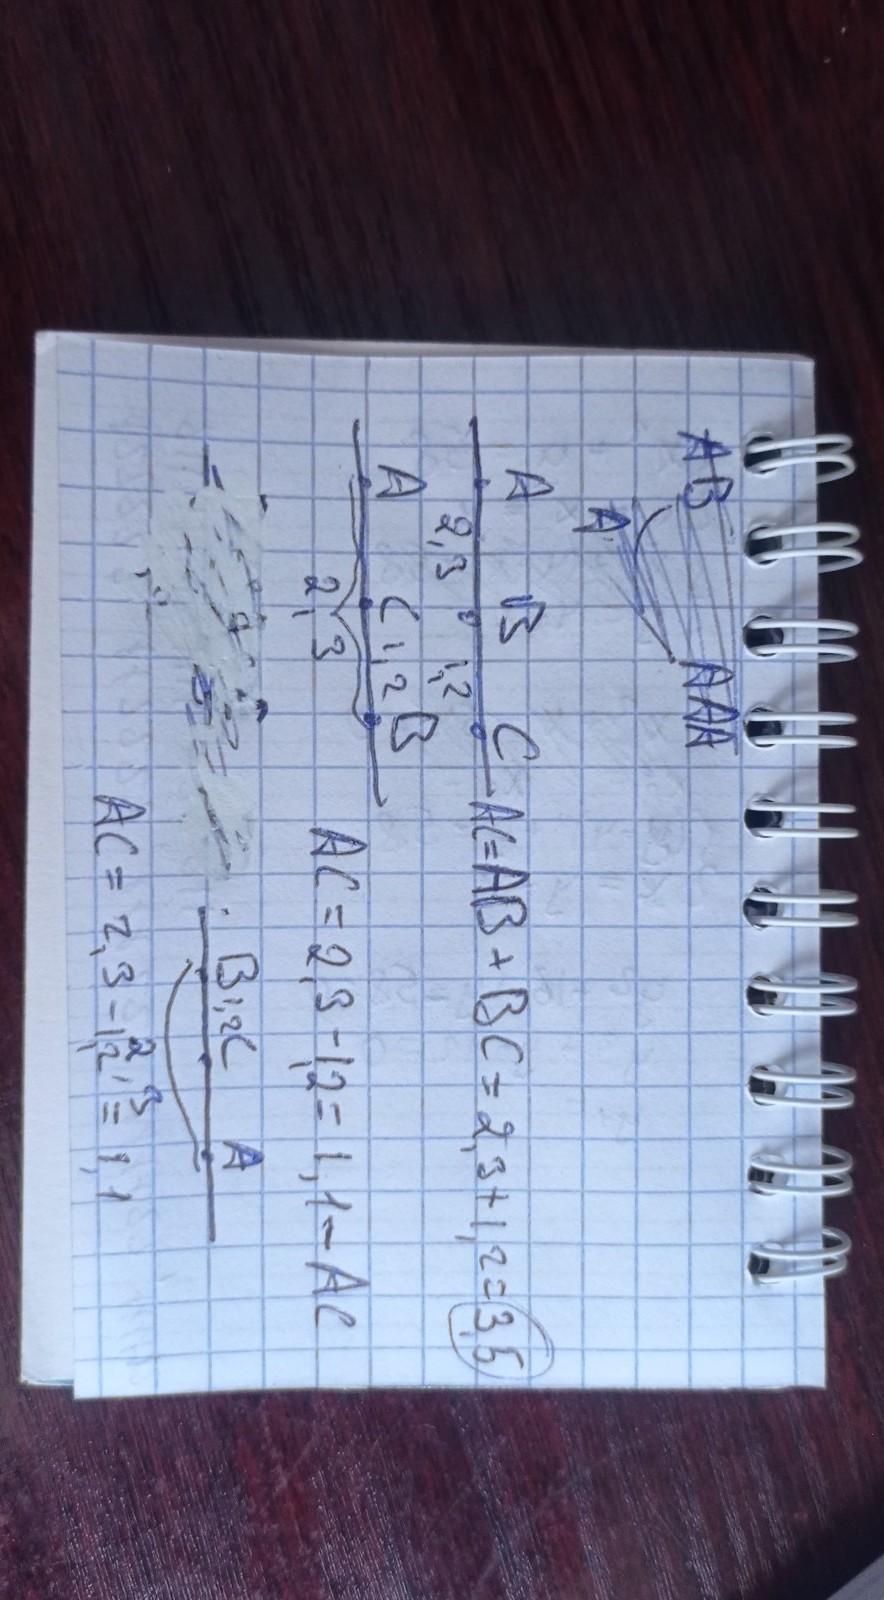 AB AAA
A
A B C
2,3 1,2
AC=AB+BC=2,3+1,2=3,5
A C 1,2 B
2,3
AC=2,3-1,2=1,1-AC
B 1,2 C A
2,3
AC=2,3-1,2=1,1